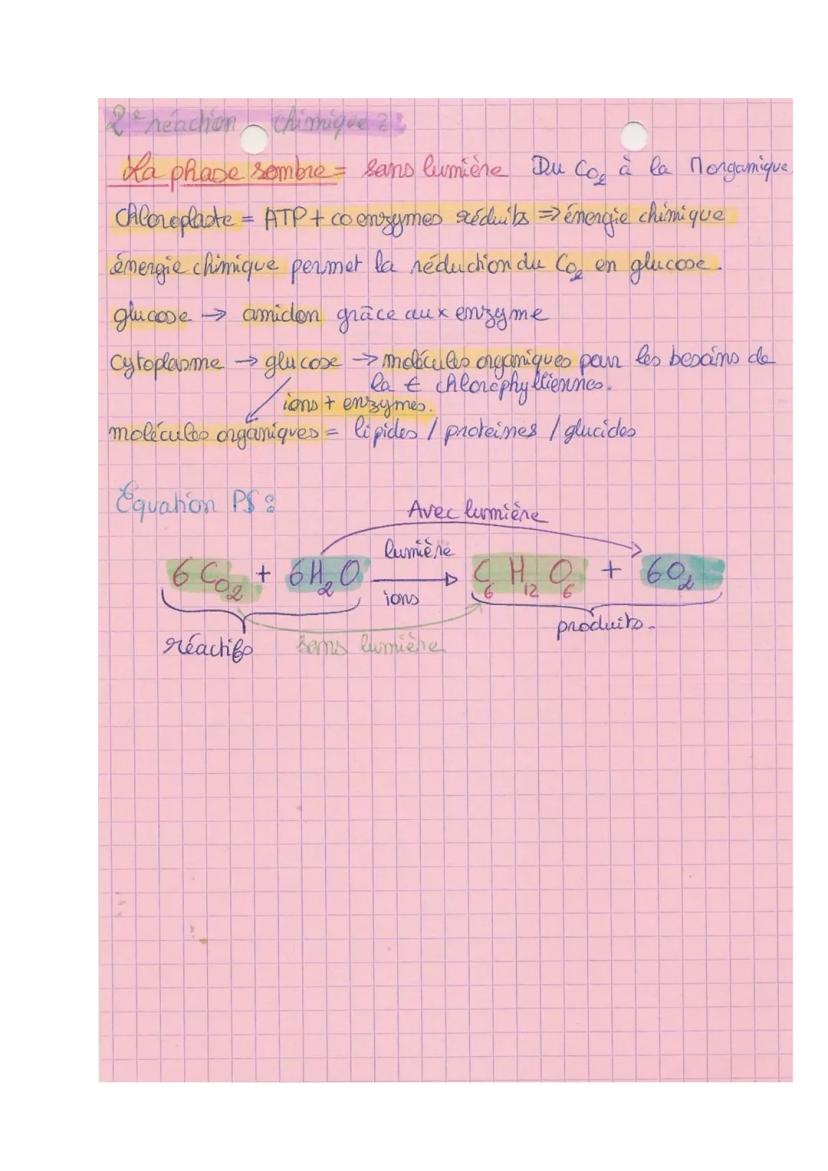 2e réaction chimique :
La phase sombre = sans lumière Du CO2 à la M organique
Chloroplaste = ATP + coenzymes réduits ⇒ énergie chimique
énergie chimique permet la réduction du CO2 en glucose.
glucose → amidon grâce aux enzyme
cytoplasme → glucose → molécules organiques pour les besoins de
la ¢ chlorophylliennes.
ions + enzymes.
molécules organiques = lipides / proteines / glucides
Équation PS :
Avec lumière
lumière
6 CO2 + 6H2O → C6H12O6 + 6O2
ions
réactifs
sans lumière
produits.